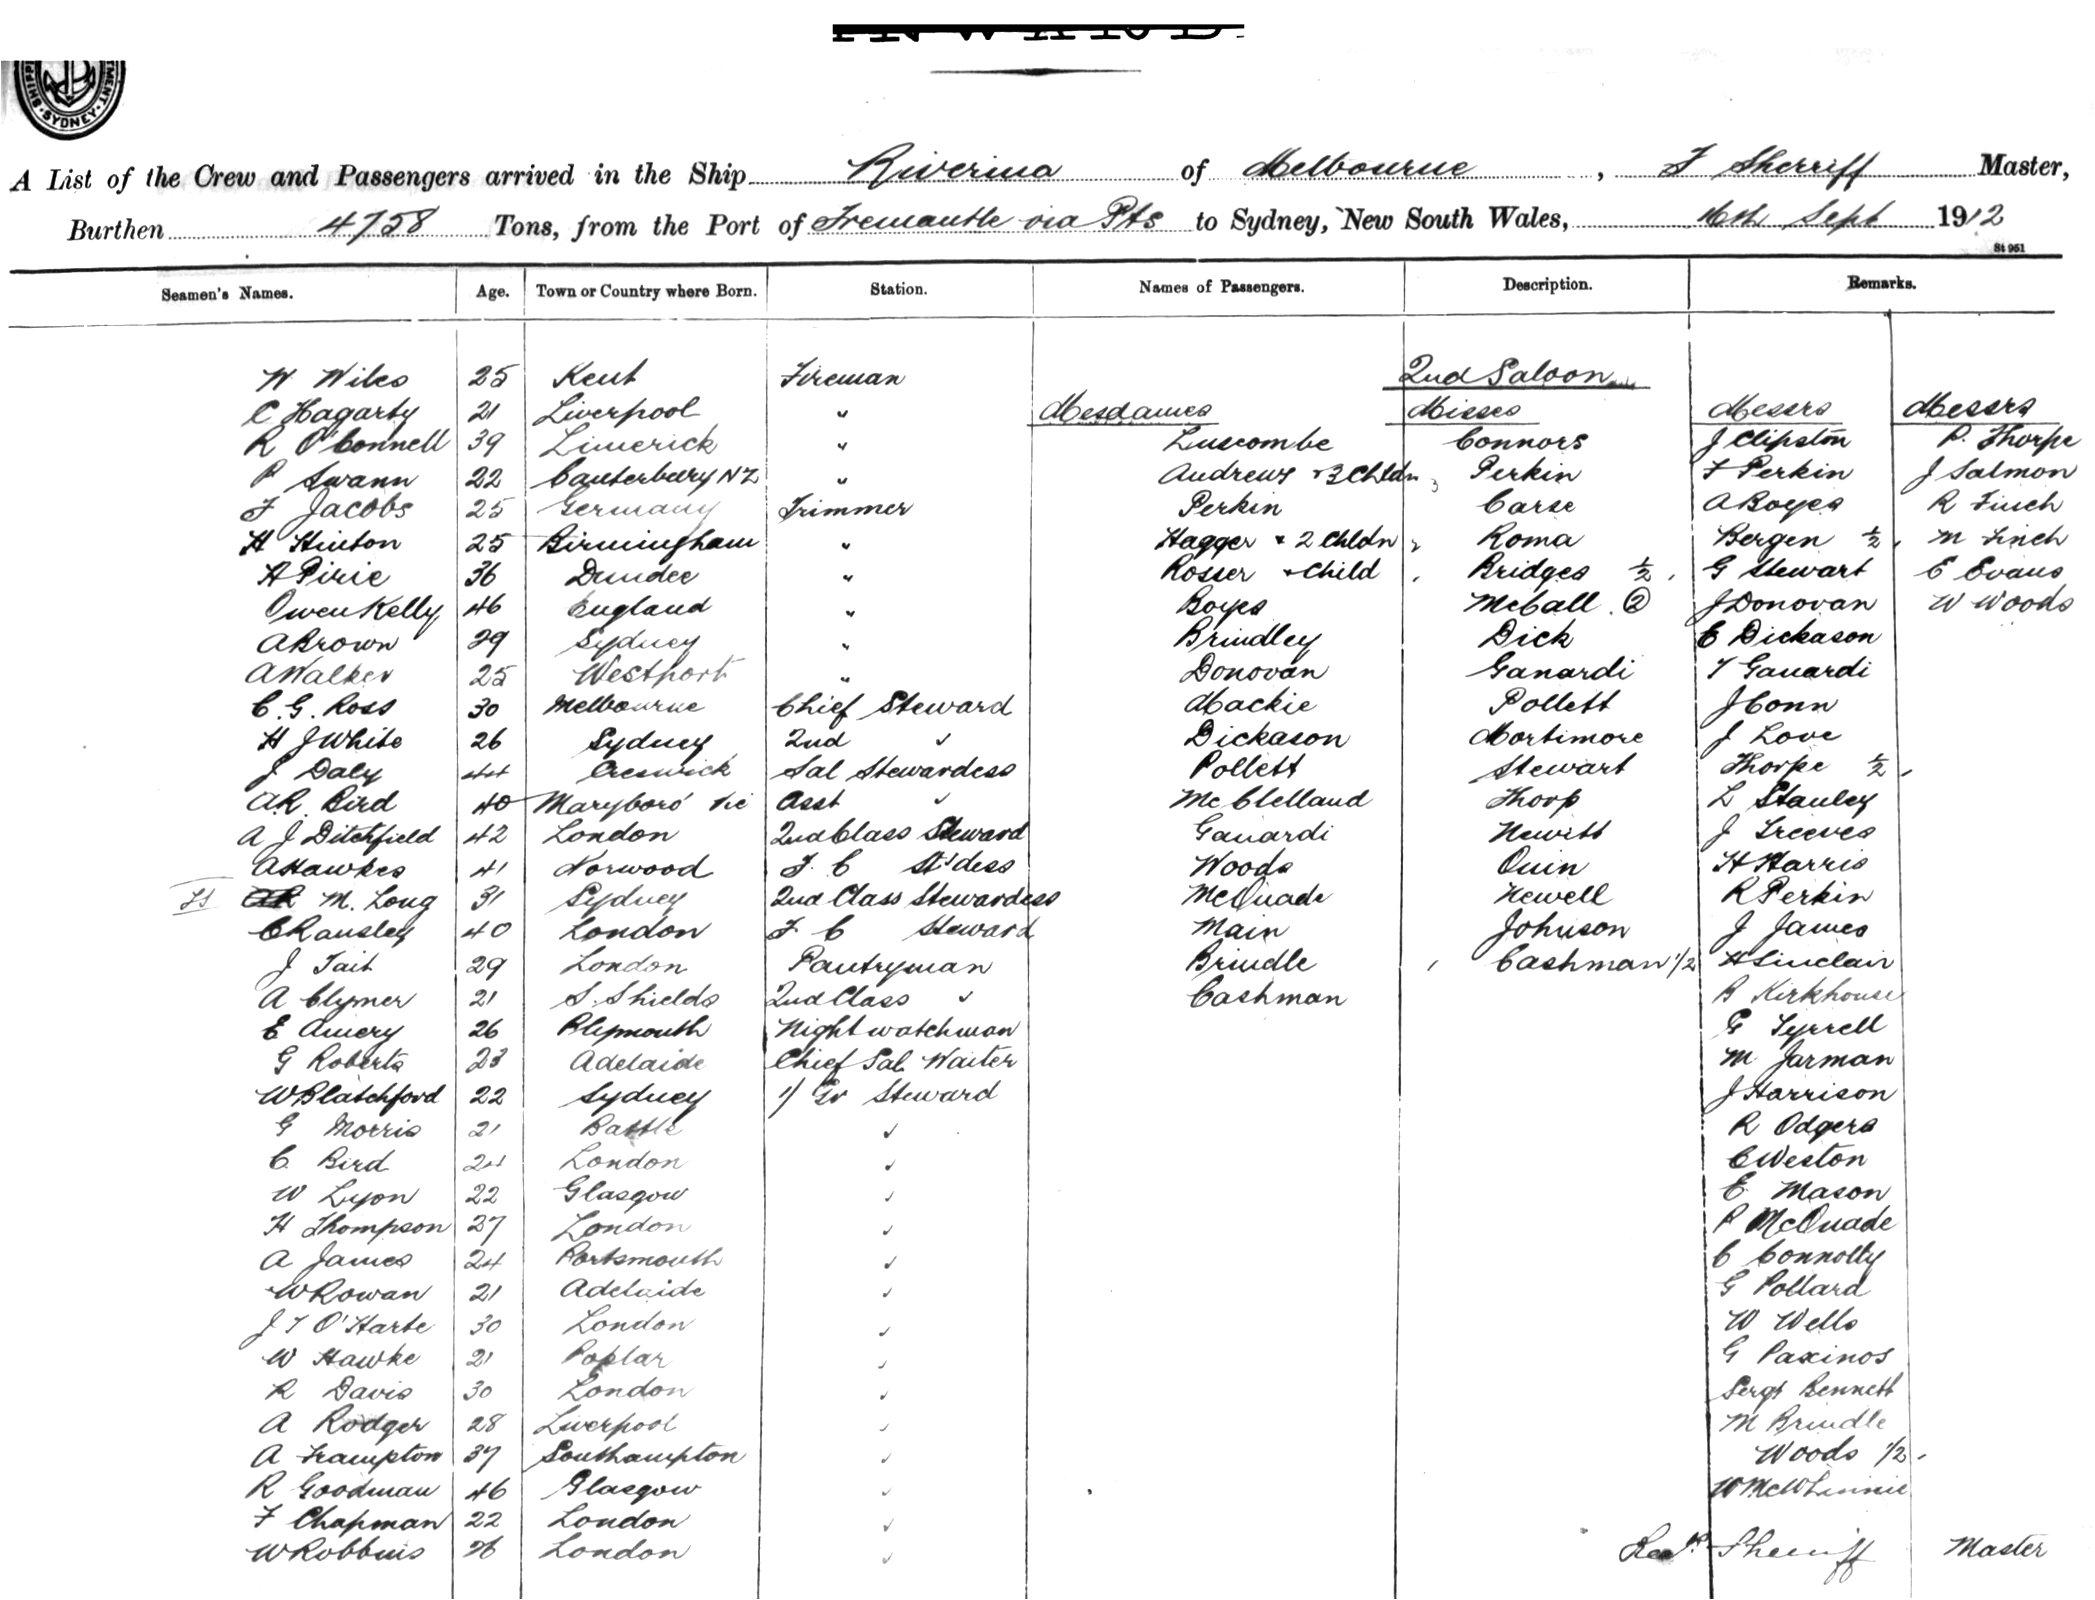 INWARD.
SYDNEY
A List of the Crew and Passengers arrived in the Ship Riverina of Melbourne, F Sherriff Master,
Burthen 4758 Tons, from the Port of Fremantle via Pts to Sydney, New South Wales, 16th Sept 1912
St 951
Seamen's Names. Age. Town or Country where Born. Station. Names of Passengers. Description. Remarks.
W Wiles 25 Kent Fireman 2nd Saloon
C Hagarty 21 Liverpool " Mesdames Misses Messrs Messrs
R O'Connell 39 Limerick " Luscombe Connors J Clipston P. Thorpe
P Swann 22 Canterbury NZ " Andrews + 3 Chldn Perkin F Perkin J Salmon
F Jacobs 25 Germany Trimmer Perkin Carse A Boyes R Finch
H Hinton 25 Birmingham " Hagger + 2 Chldn Roma Bergen ½ M Finch
A Pirie 36 Dundee " Rosser + Child Bridges ½ G Stewart E Evans
Owen Kelly 46 England " Boyes McCall ② J Donovan W Woods
A Brown 29 Sydney " Brindley Dick E Dickason
A Walker 25 Westport " Donovan Ganardi T Ganardi
C. G. Ross 30 Melbourne Chief Steward Mackie Pollett J Conn
H J White 26 Sydney 2nd " Dickason Mortimore J Love
J Daly 44 Creswick Sal Stewardess Pollett Stewart Thorpe ½
A.R. Bird 40 Maryboro' Vic Asst " McClelland Thorp L Stanley
A J Ditchfield 42 London 2nd Class Steward Ganardi Hewitt J Treeves
A Hawkes 41 Norwood F. C St'dess Woods Quin H Harris
M. Long 31 Sydney 2nd Class Stewardess McQuade Newell R Perkin
C Ransley 40 London F C Steward Main Johnson J James
J Tait 29 London Pantryman Brindle Cashman 1/2 H Sinclair
A Clymer 21 S. Shields 2nd Class " Cashman B Kirkhouse
E Amery 26 Plymouth Nightwatchman G Tyrrell
G Roberts 23 Adelaide Chief Sal. Waiter M Jarman
W Blatchford 22 Sydney 1/ Gr Steward J Harrison
G Morris 21 Battle " R Odgers
C. Bird 24 London " C Weston
W Lyon 22 Glasgow " E Mason
H Thompson 27 London " P McQuade
A James 24 Portsmouth " C Connolly
W Rowan 21 Adelaide " G Pollard
J T O'Harte 30 London " W Wells
W Hawke 21 Poplar " G Paxinos
R Davis 30 London " Sergt Bennett
A Rodger 28 Liverpool " M Brindle
A Frampton 37 Southampton " Woods 1/2
R Goodman 46 Glasgow " W McWhinnie
F Chapman 22 London "
W Robbins 26 London " Sherriff Master